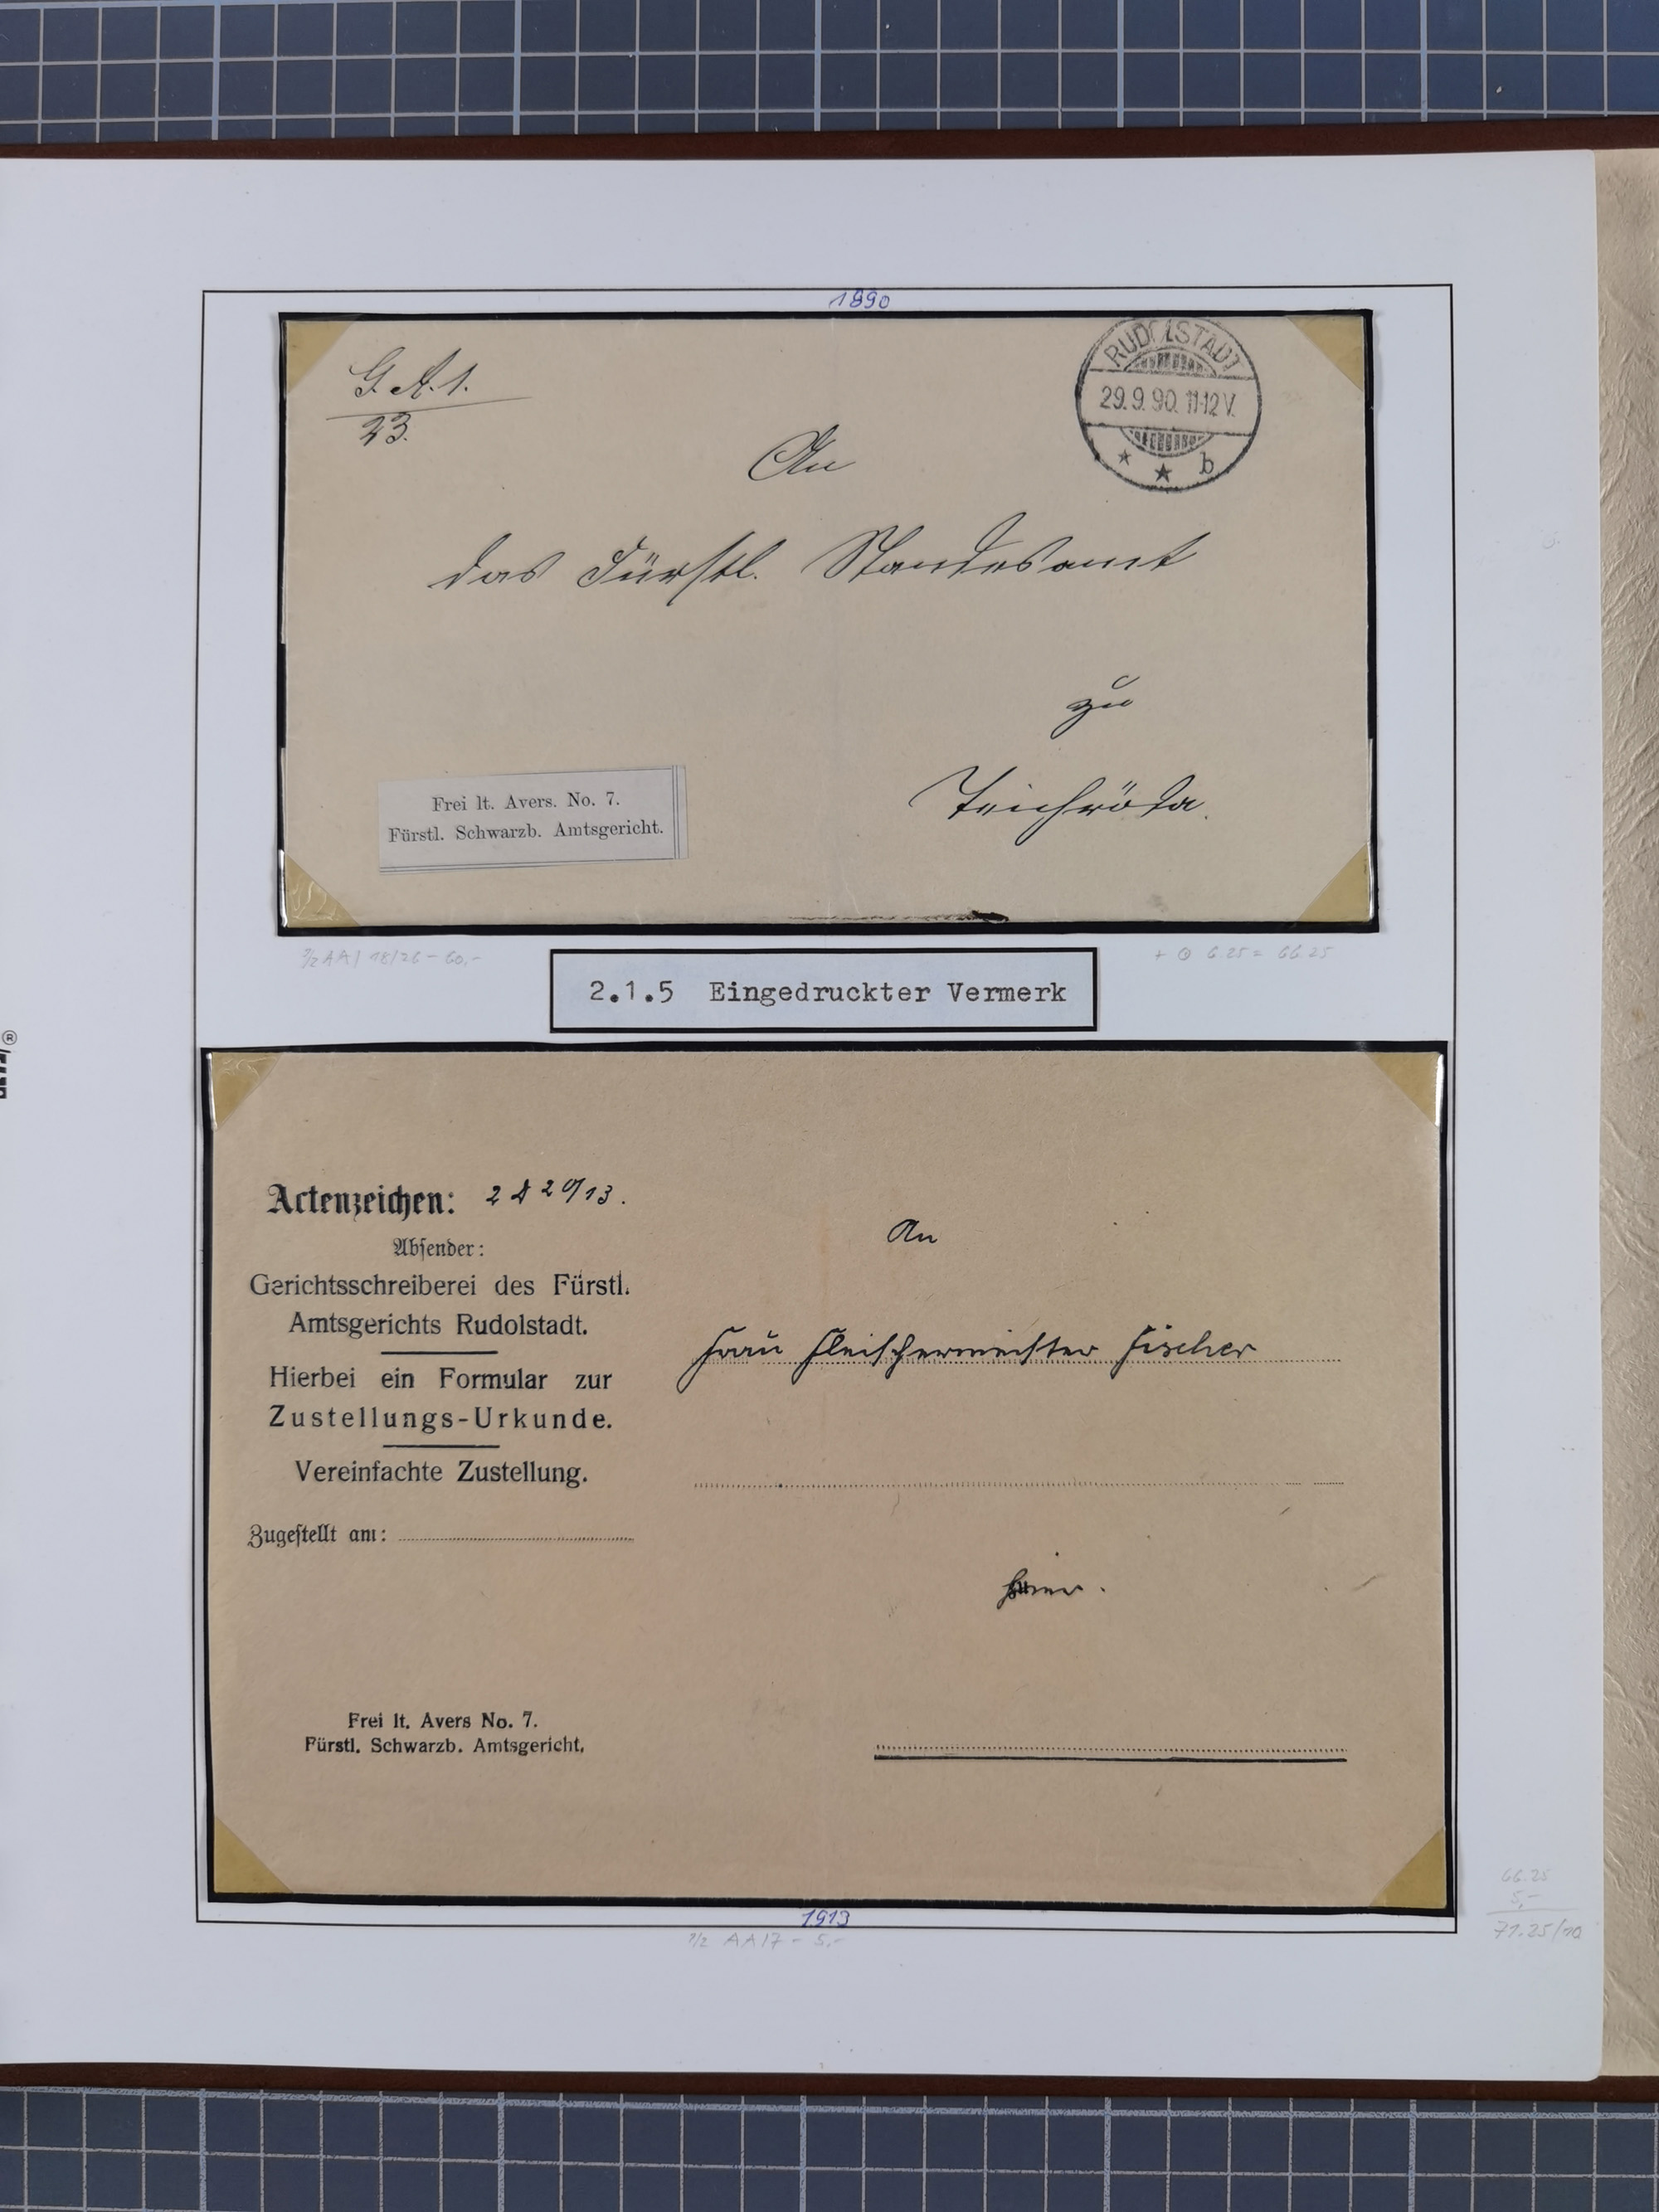 1890
G. A. 1.
23.
RUDOLSTADT
29.9.90. 11-12 V.
* * b
An
das Fürstl. Standesamt
zu
Teichröda.
Frei lt. Avers. No. 7.
Fürstl. Schwarzb. Amtsgericht.
+ 6.25 = 66.25
2.1.5 Eingedruckter Vermerk
Actenzeichen:
Absender:
Gerichtsschreiberei des Fürstl.
Amtsgerichts Rudolstadt.
Hierbei ein Formular zur
Zustellungs-Urkunde.
Vereinfachte Zustellung.
Zugestellt am:
An
Frau Fleischermeister Fischer
hier.
Frei lt. Avers No. 7.
Fürstl. Schwarzb. Amtsgericht.
1913
1/2 AA17 - 5,-
66.25
5,-
71.25/